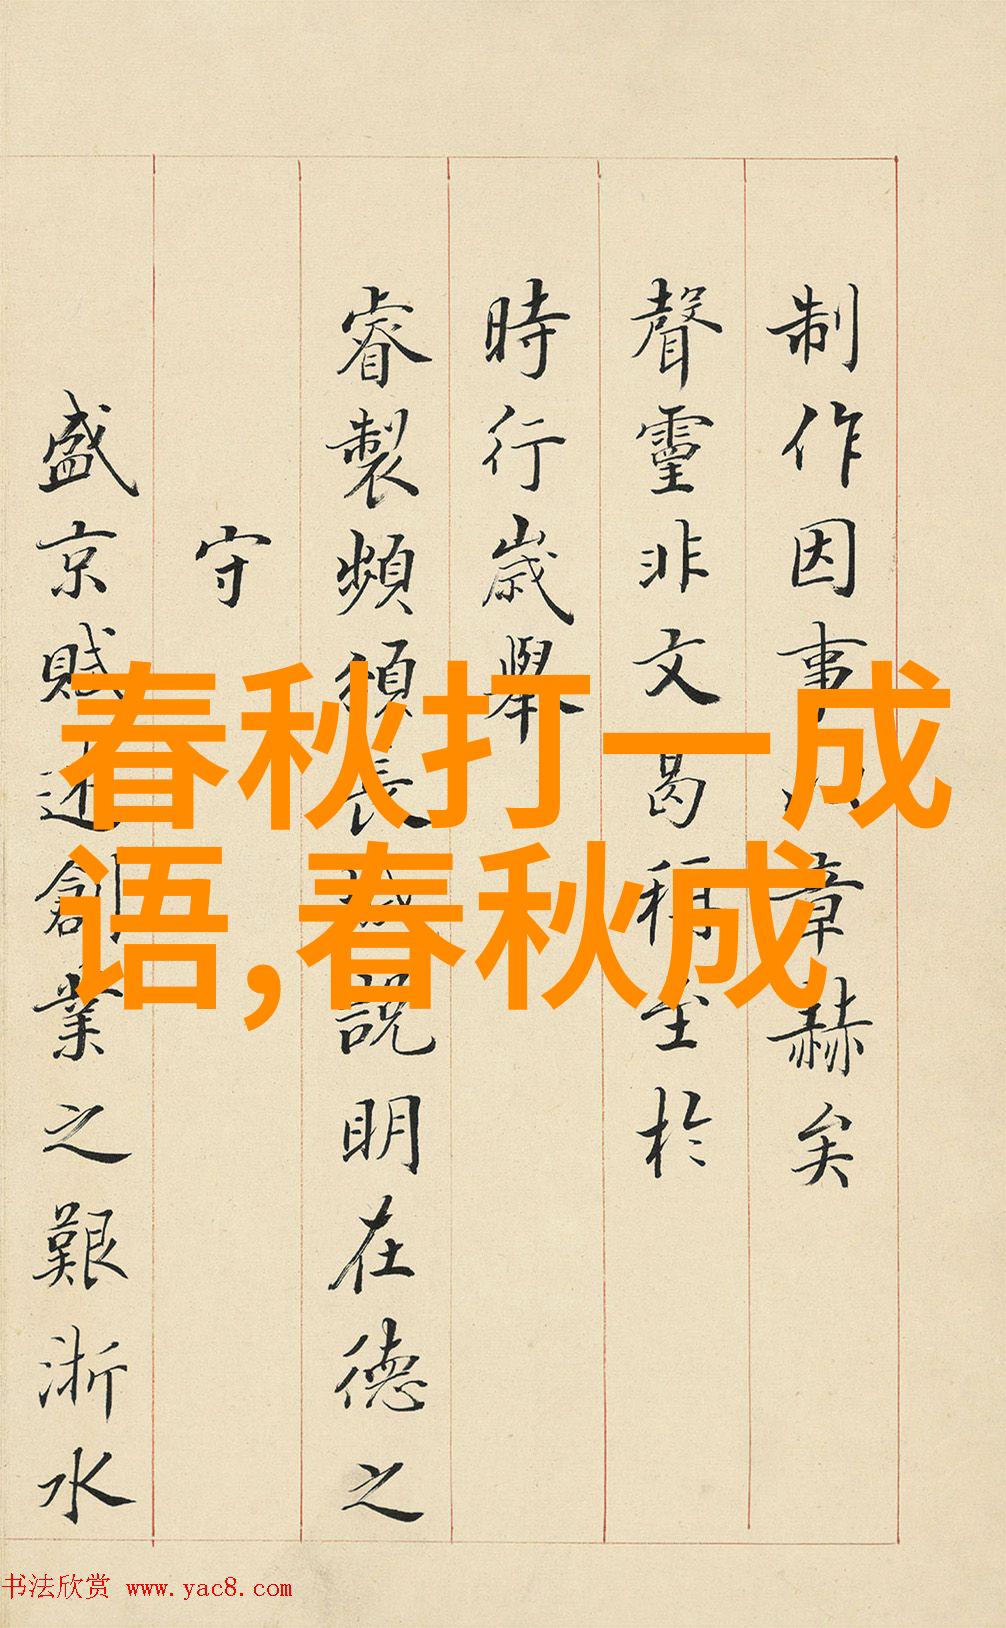 制作因事以章赫矣
聲靈非文曷稱至於
時行歲舉
睿製頻頒長城説明在德之
守
盛京賦述創業之艱浙水
春秋打一成
语,春秋成
书法欣赏 www.yac8.com